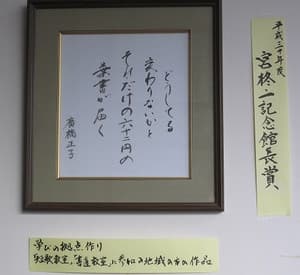 どうしてる
変わりないかと
それだけの六十二円の
葉書が届く
橋正子
平成三十年度
宮柊二記念館長賞
学びの拠点作り
短歌教室,「書道教室」に参加の地域の方の作品